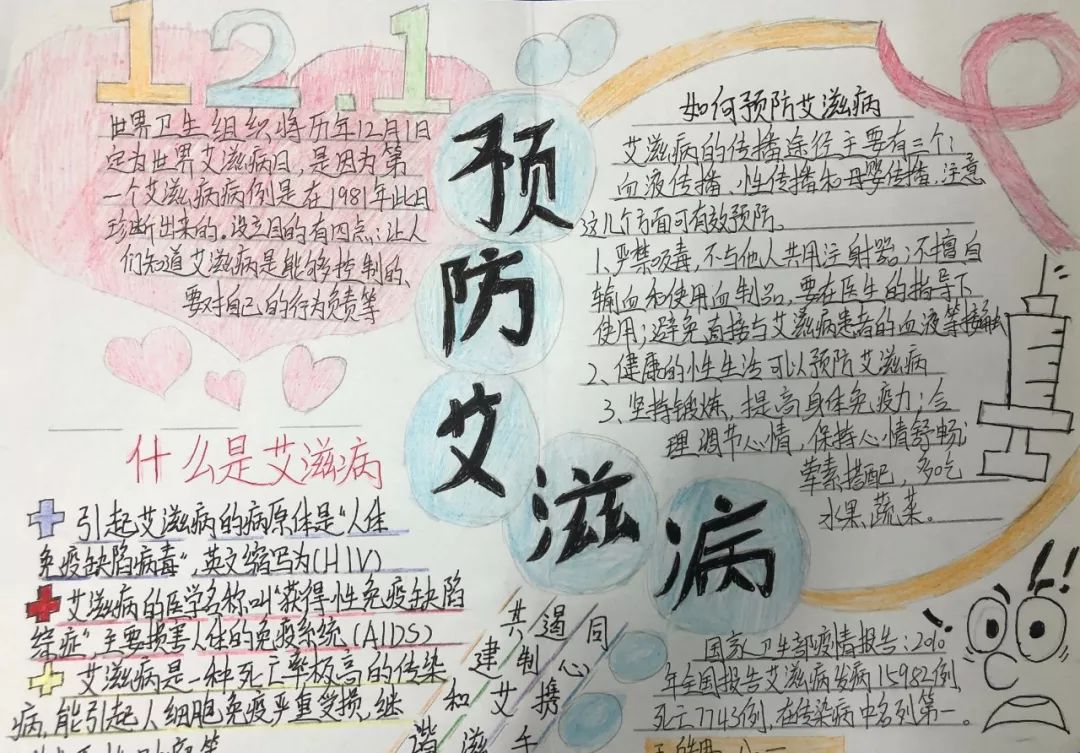 12.1
世界卫生组织将历年12月1日
定为世界艾滋病日，是因为第
一个艾滋病病例是在1981年此日
诊断出来的。设立目的有四点：让人
们知道艾滋病是能够控制的、
要对自己的行为负责等
什么是艾滋病
引起艾滋病的病原体是“人体
免疫缺陷病毒”，英文缩写为(HIV)
艾滋病的医学名称叫“获得性免疫缺陷
综症”，主要损害人体的免疫系统(AIDS)
艾滋病是一种死亡率极高的传染
病，能引起人细胞免疫严重受损，继
预防艾滋病
如何预防艾滋病
艾滋病的传播途径主要有三个：
血液传播、性传播和母婴传播，注意
这几个方面可有效预防。
1、严禁吸毒，不与他人共用注射器；不擅自
输血和使用血制品，要在医生的指导下
使用；避免直接与艾滋病患者的血液等接触
2、健康的性生活可以预防艾滋病
3、坚持锻炼，提高身体免疫力；合
理调节心情，保持心情舒畅
荤素搭配，多吃
水果、蔬菜。
同心携手
共遏制艾滋
建和谐
国家卫生部疫情报告：2010
年全国报告艾滋病发病15982例
死亡7743例，在传染病中名列第一。
!!